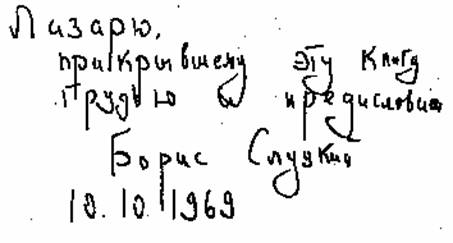 Лазарю,
прикрывшему эту книгу
грудью и предисловием
Борис Слуцкий
10.10.1969